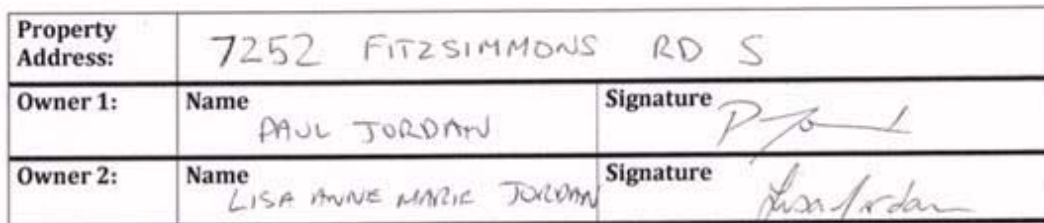 Property Address: 7252 FITZSIMMONS RD S
Owner 1: Name PAUL JORDAN Signature P Jordan
Owner 2: Name LISA ANNE MARIE JORDAN Signature Lisa Jordan